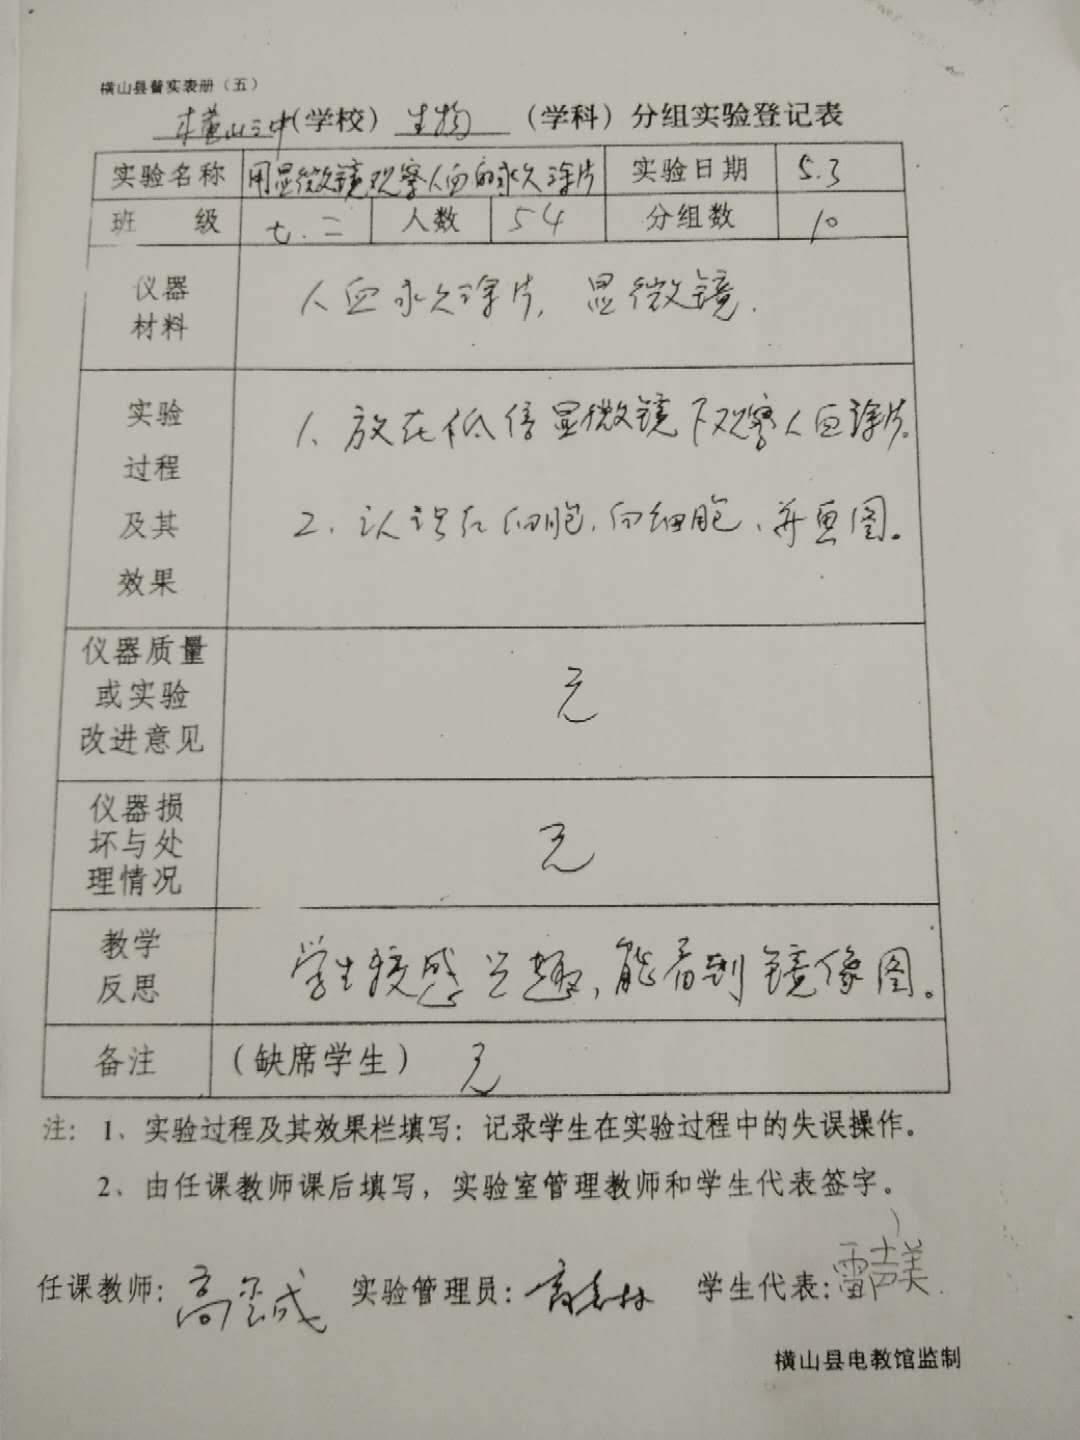 横山县督实表册（五）
横山三中（学校） 生物 （学科）分组实验登记表
实验名称 用显微镜观察人血的永久涂片 实验日期 5.3
班 级 七.二 人数 54 分组数 10
仪器材料 人血永久涂片, 显微镜.
实验过程及其效果 1、放在低倍显微镜下观察人血涂片。
2、认识红细胞、白细胞、并画图。
仪器质量或实验改进意见 无
仪器损坏与处理情况 无
教学反思 学生较感兴趣，能看到镜像图。
备注 （缺席学生） 无
注：1、实验过程及其效果栏填写：记录学生在实验过程中的失误操作。
2、由任课教师课后填写，实验室管理教师和学生代表签字。
任课教师：高 成 实验管理员： 学生代表：雷 美
横山县电教馆监制